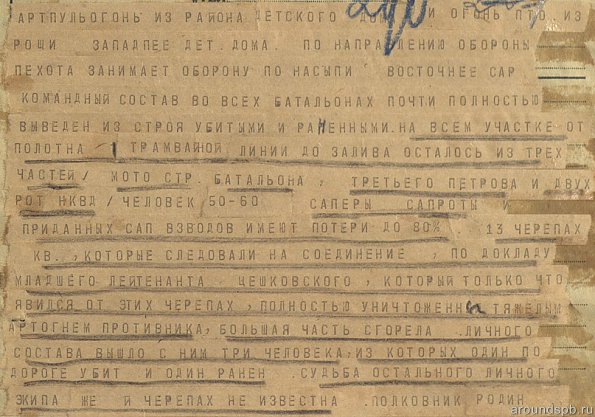 АРТПУЛЬОГОНЬ ИЗ РАЙОНА ДЕТСКОГО И ОГОНЬ ПТО ИЗ
РОЩИ ЗАПАДПЕЕ ДЕТ. ДОМА. ПО НАПРАВЛЕНИЮ ОБОРОНЫ
ПЕХОТА ЗАНИМАЕТ ОБОРОНУ ПО НАСЫПИ ВОСТОЧНЕЕ САР
КОМАНДНЫЙ СОСТАВ ВО ВСЕХ БАТАЛЬОНАХ ПОЧТИ ПОЛНОСТЬЮ
ВЫВЕДЕН ИЗ СТРОЯ УБИТЫМИ И РАНЕННЫМИ. НА ВСЕМ УЧАСТКЕ ОТ
ПОЛОТНА ТРАМВАЙНОЙ ЛИНИИ ДО ЗАЛИВА ОСТАЛОСЬ ИЗ ТРЕХ
ЧАСТЕЙ/ МОТО СТР. БАТАЛЬОНА, ТРЕТЬЕГО ПЕТРОВА И ДВУХ
РОТ НКВД /ЧЕЛОВЕК 50-60 САПЕРЫ САПРОТЫ И
ПРИДАННЫХ САП ВЗВОДОВ ИМЕЮТ ПОТЕРИ ДО 80% . 13 ЧЕРЕПАХ
КВ., КОТОРЫЕ СЛЕДОВАЛИ НА СОЕДИНЕНИЕ , ПО ДОКЛАДУ
МЛАДШЕГО ЛЕЙТЕНАНТА ЦЕШКОВСКОГО , КОТОРЫЙ ТОЛЬКО ЧТО
ЯВИЛСЯ ОТ ЭТИХ ЧЕРЕПАХ , ПОЛНОСТЬЮ УНИЧТОЖЕНЫ ТЯЖЕЛЫМ
АРТОГНЕМ ПРОТИВНИКА, БОЛЬШАЯ ЧАСТЬ СГОРЕЛА .ЛИЧНОГО
СОСТАВА ВЫШЛО С НИМ ТРИ ЧЕЛОВЕКА, ИЗ КОТОРЫХ ОДИН ПО
ДОРОГЕ УБИТ И ОДИН РАНЕН . СУДЬБА ОСТАЛЬНОГО ЛИЧНОГО
ЭКИПА ЖЕ Й ЧЕРЕПАХ НЕ ИЗВЕСТНА .ПОЛКОВНИК РОДИН
aroundspb.ru